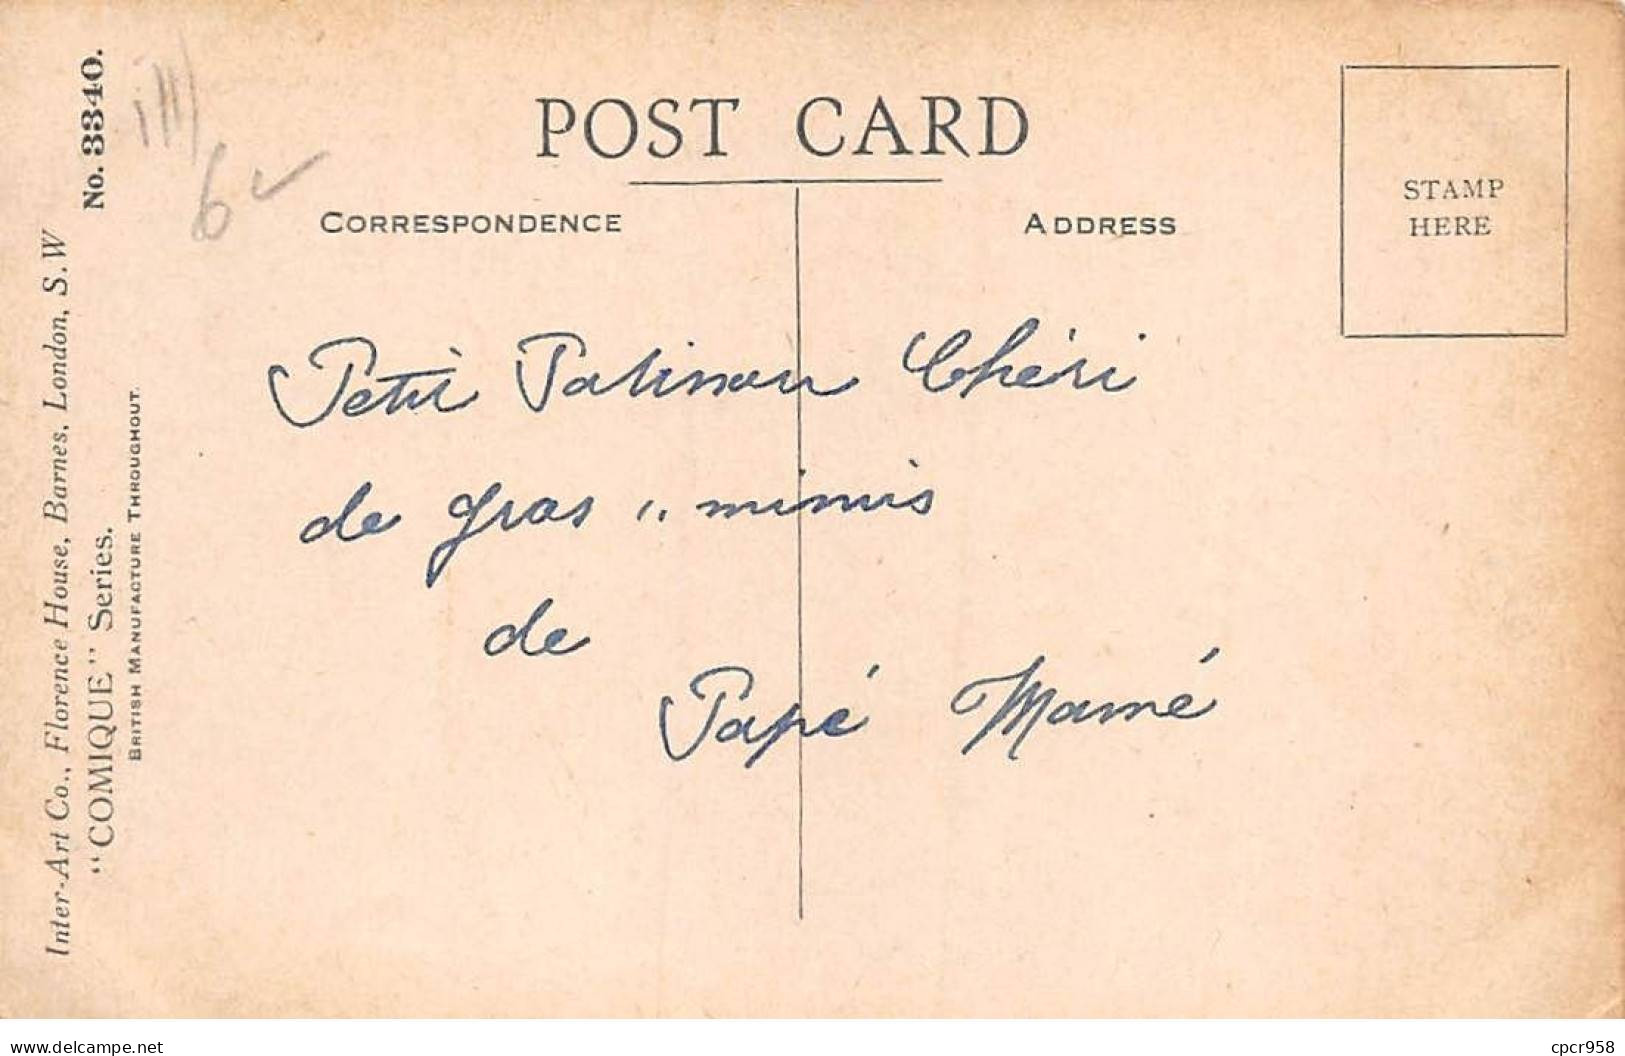 No. 3340.
Inter-Art Co., Florence House, Barnes, London, S.W
"COMIQUE" Series.
BRITISH MANUFACTURE THROUGHOUT.
ill
6
POST CARD
CORRESPONDENCE
ADDRESS
STAMP
HERE
Petit Patinou Chéri
de gros " mimis
de
Papé Mamé
delcampe.net
cpcr958